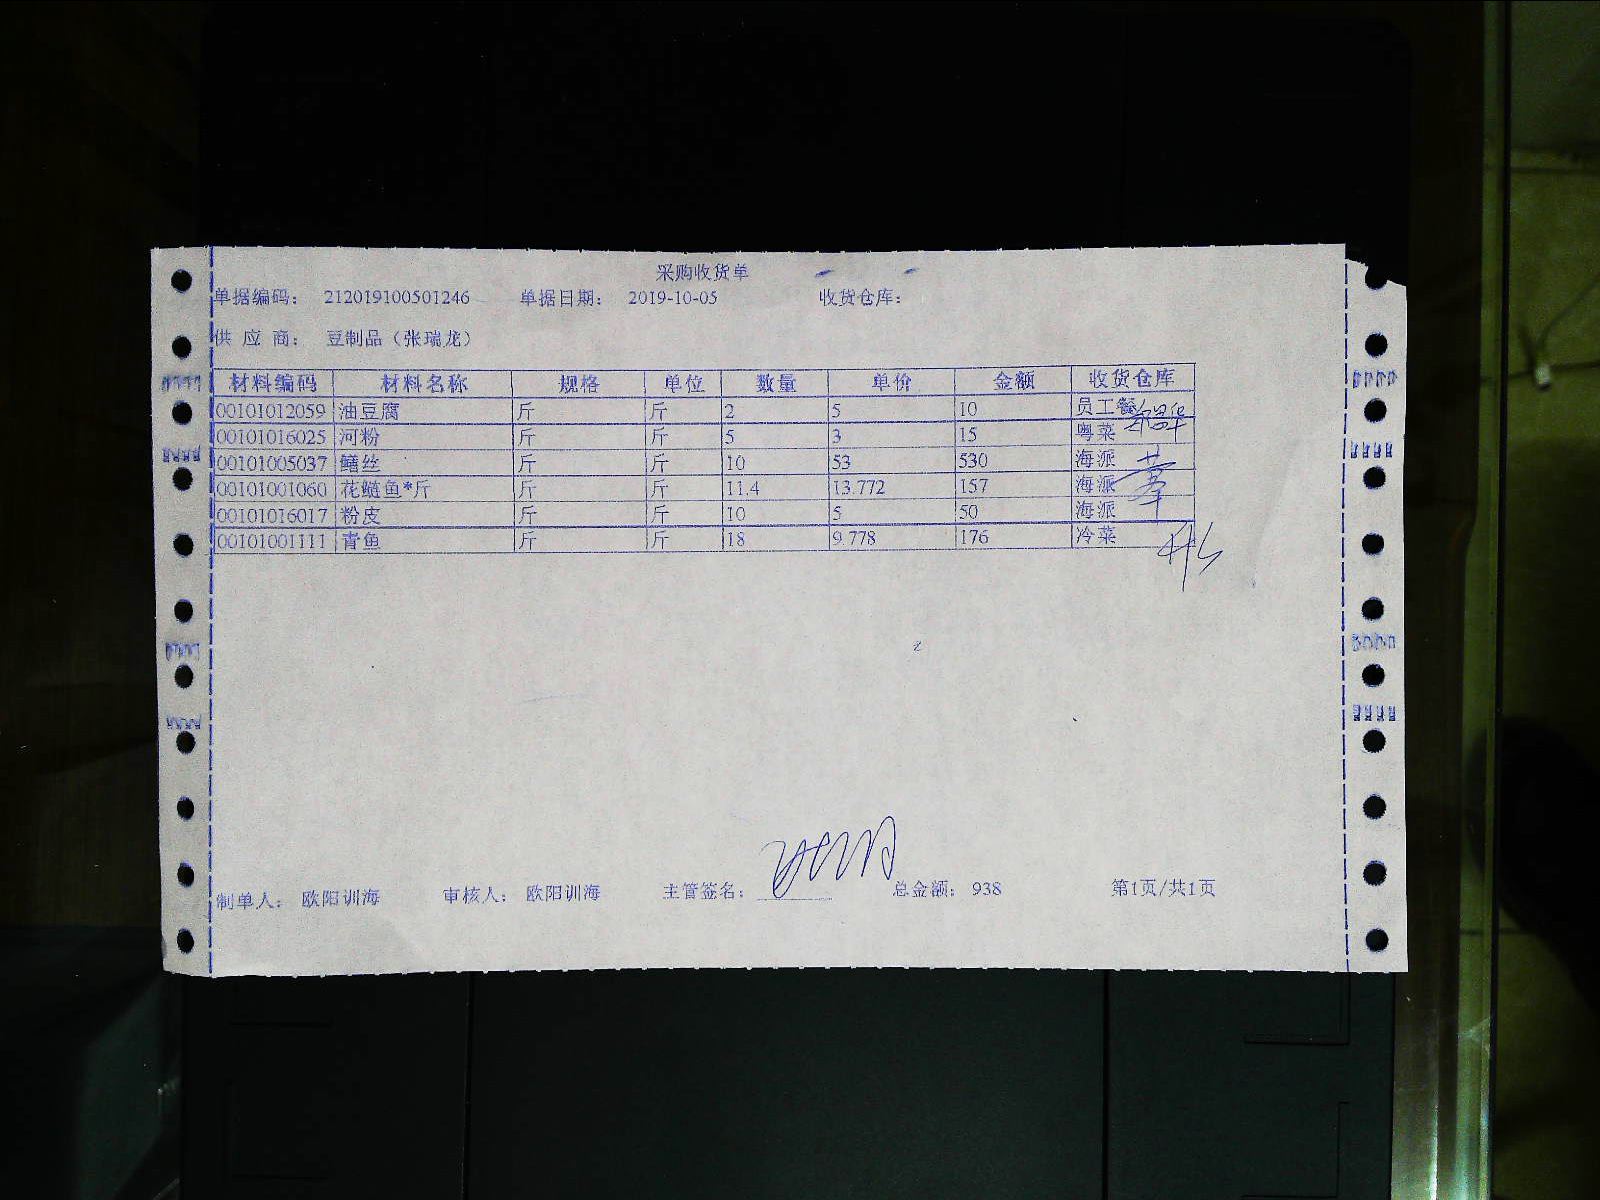 采购收货单
单据编码： 212019100501246 单据日期： 2019-10-05 收货仓库：
供 应 商： 豆制品（张瑞龙）
材料编码 材料名称 规格 单位 数量 单价 金额 收货仓库
00101012059 油豆腐 斤 斤 2 5 10 员工餐
00101016025 河粉 斤 斤 5 3 15 粤菜
00101005037 鳝丝 斤 斤 10 53 530 海派
00101001060 花鲢鱼*斤 斤 斤 11.4 13.772 157 海派
00101016017 粉皮 斤 斤 10 5 50 海派
00101001111 青鱼 斤 斤 18 9.778 176 冷菜
制单人： 欧阳训海 审核人： 欧阳训海 主管签名： 总金额： 938 第1页/共1页